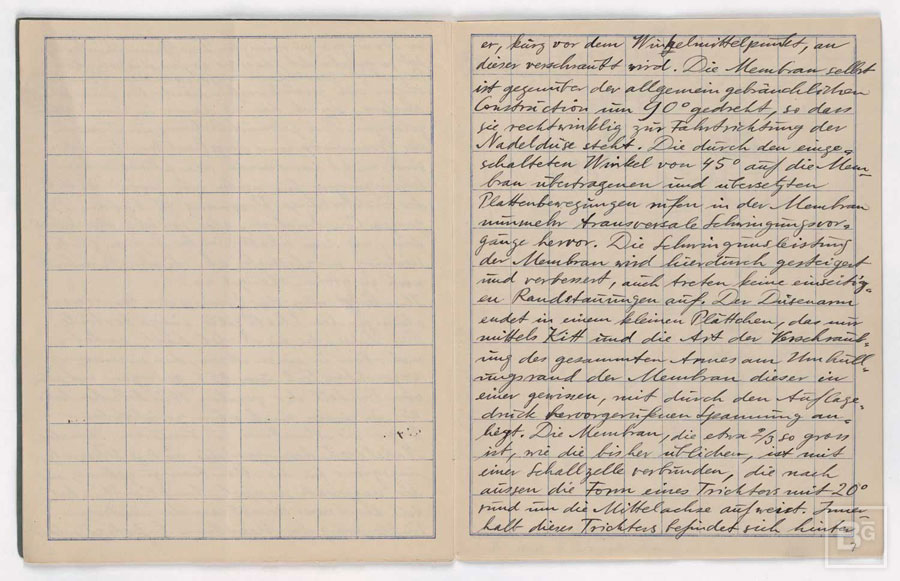 er, kurz vor dem Winkelmittelpunkt, an
dieser verschraubt wird. Die Membran selbst
ist gegenüber der allgemein gebräuchlichen
Construction um 90° gedreht, so dass
sie rechtwinklig zur Fahrtrichtung der
Nadeldüse steht. Die durch den einge=
schalteten Winkel von 45° auf die Mem=
bran übertragenen und übersetzten
Plattenbewegungen rufen in der Membran
nunmehr transversale Schwingungsvor=
gänge hervor. Die Schwingunsleistung
der Membran wird hierdurch gesteigert
und verbessert, auch treten keine einseitig=
en Randstauungen auf. Der Düsenarm
endet in einem kleinen Plättchen, das nur
mittels Kitt und die Art der Verschraub=
ung des gesammten Armes am Umhüll=
ungsrand der Membran dieser in
einer gewissen, mit durch den Auflage=
druck hervorgerufenen Spannung an=
liegt. Die Membran, die etwa 2/3 so gross
ist, wie die bisher üblichen, ist mit
einer Schallzelle verbunden, die nach
aussen die Form eines Trichters mit 20°
rund um die Mittelachse aufweist. Inner=
halb dieses Trichters befindet sich hinter
BG